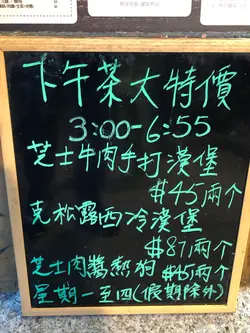 下午茶大特價
3:00-6:55
芝士牛肉手打漢堡
$45兩个
克松露西冷漢堡
$87兩个
芝士肉醬熱狗 $45兩个
星期一至四(假期除外)